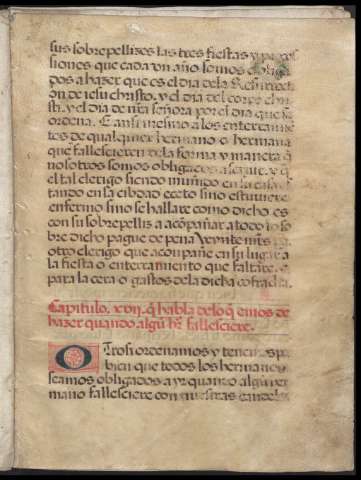 sus sobrepellizes las tres fiestas y proces
siones que cada vn año somos obliga
dos a hazer que es el dia dela Resurrecti
on de iesu christo. y el dia del corpo chri
sti. y el dia de nr̃a señora por el dia que se
ordena. E ansi mesmo a los enterramie
tes de qualquier hermano o hermana
que fallesciere en la forma y manera q̃
nosotros somos obligados a seguir. y q̃
el tal clerigo siendo muñido en la casa es
tando en la cibdad eceto sino estuviere
enfermo sino se hallare como dicho es
con su sobrepellis a acõpañar a todo lo so
bre dicho pague de pena veynte mr̃s
otro clerigo que acompañe en su lugar a
la fiesta o enterramiento que faltare. e
para la cera o gastos dela dicha cofradia.
Capitulo. xvij. q̃ habla delo q̃ emos de
hazer quando algũ hr̃. fallesciere.
OTrosi ordenamos y tenemos por
bien que todos los hermanos
seamos obligados a yr quando algũ her
mano fallesciere con nuestras candelas